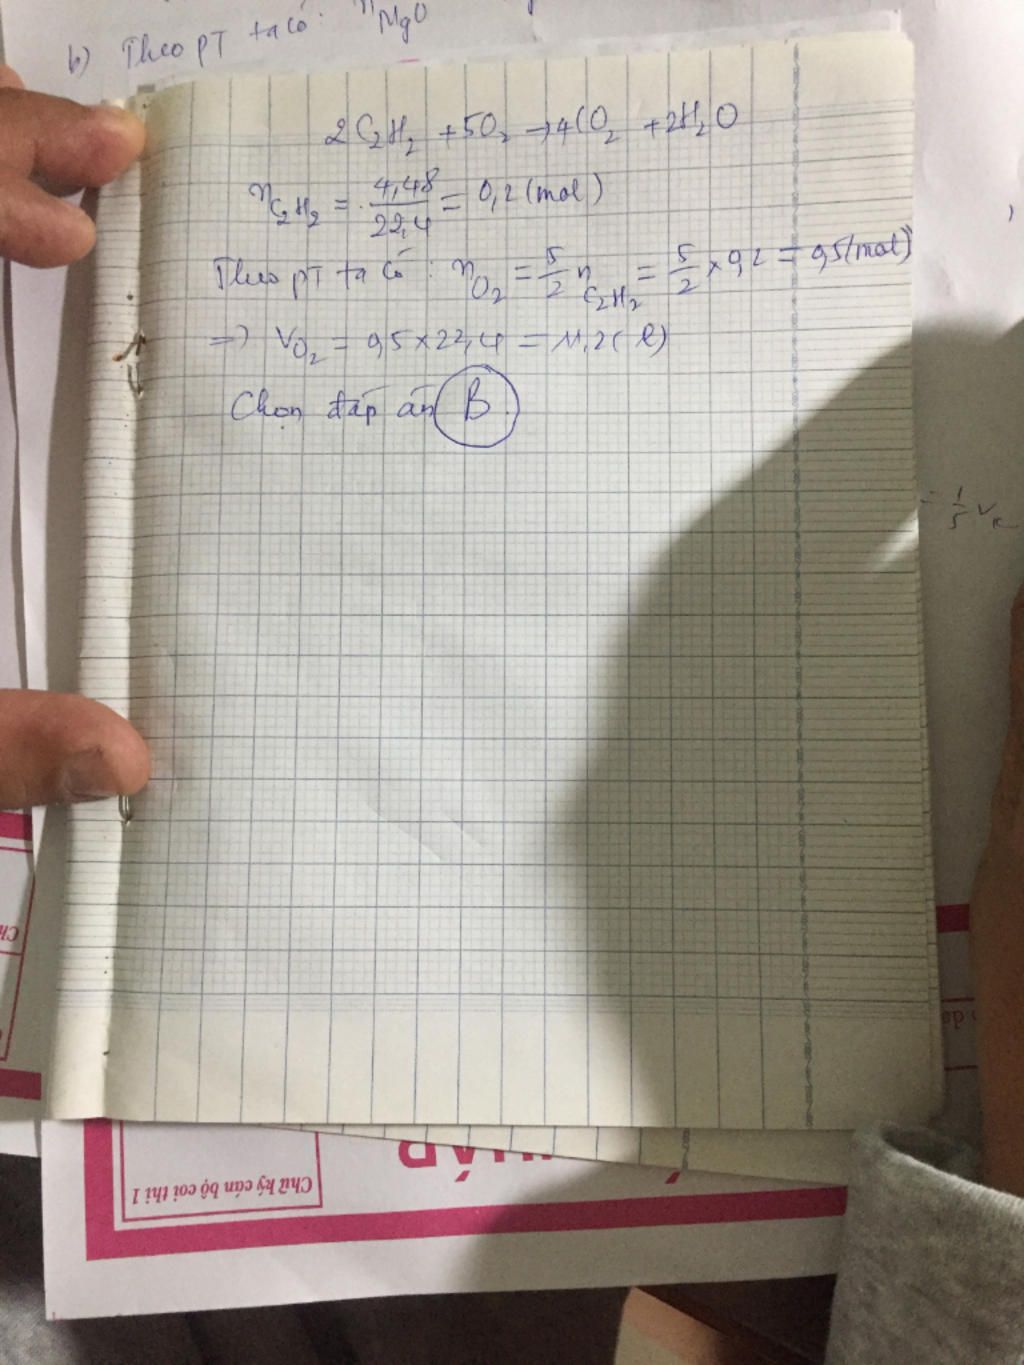 b) Theo PT ta có: nMgO
2C₂H₂ + 5O₂ → 4CO₂ + 2H₂O
nC₂H₂ = 4,48/22,4 = 0,2 (mol)
Theo pT ta có: nO₂ = 5/2 nC₂H₂ = 5/2 × 0,2 = 0,5 (mol)
=> VO₂ = 0,5 × 22,4 = 11,2 (l)
Chọn đáp án B
= 1/5 V
Chữ ký cán bộ coi thi 1